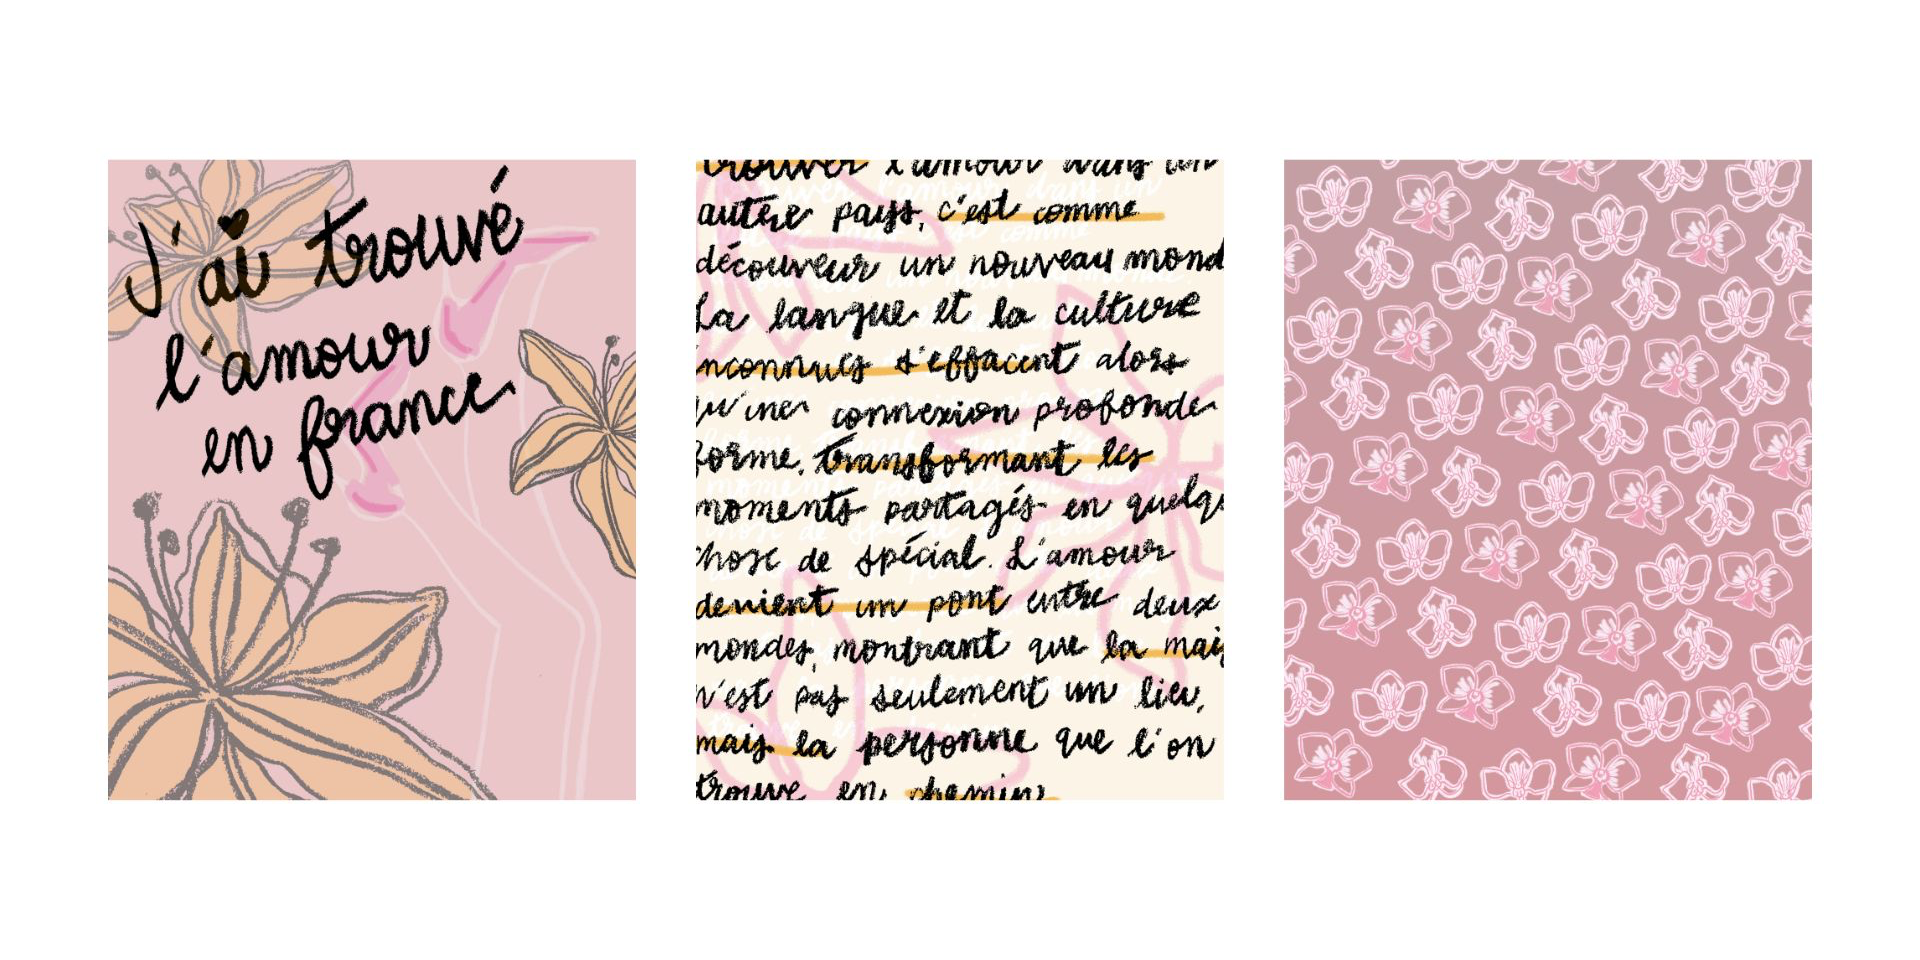 J'ai trouvé
l'amour
en france
trouver l'amour dans un
autre pays, c'est comme
découveur un nouveau mond
La langue et la culture
inconnues s'effacent alors
qu'une connexion profonde
forme, transformant les
moments partagés en quelqu
chose de spécial. L'amour
devient un pont entre deux
mondes, montrant que la mais
n'est pas seulement un lieu,
mais la personne que l'on
trouve en chemin